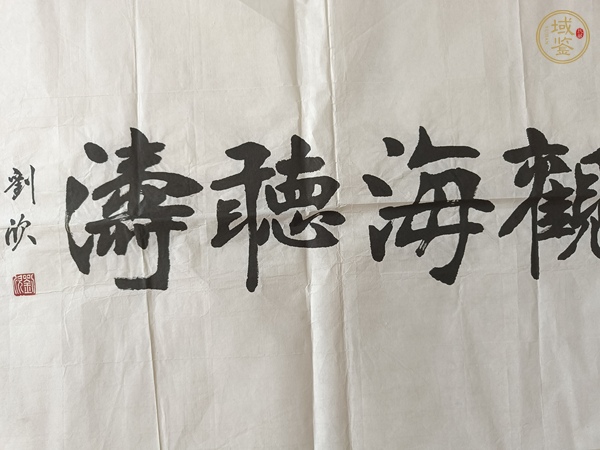 觀海聽濤
劉欣
域鉴